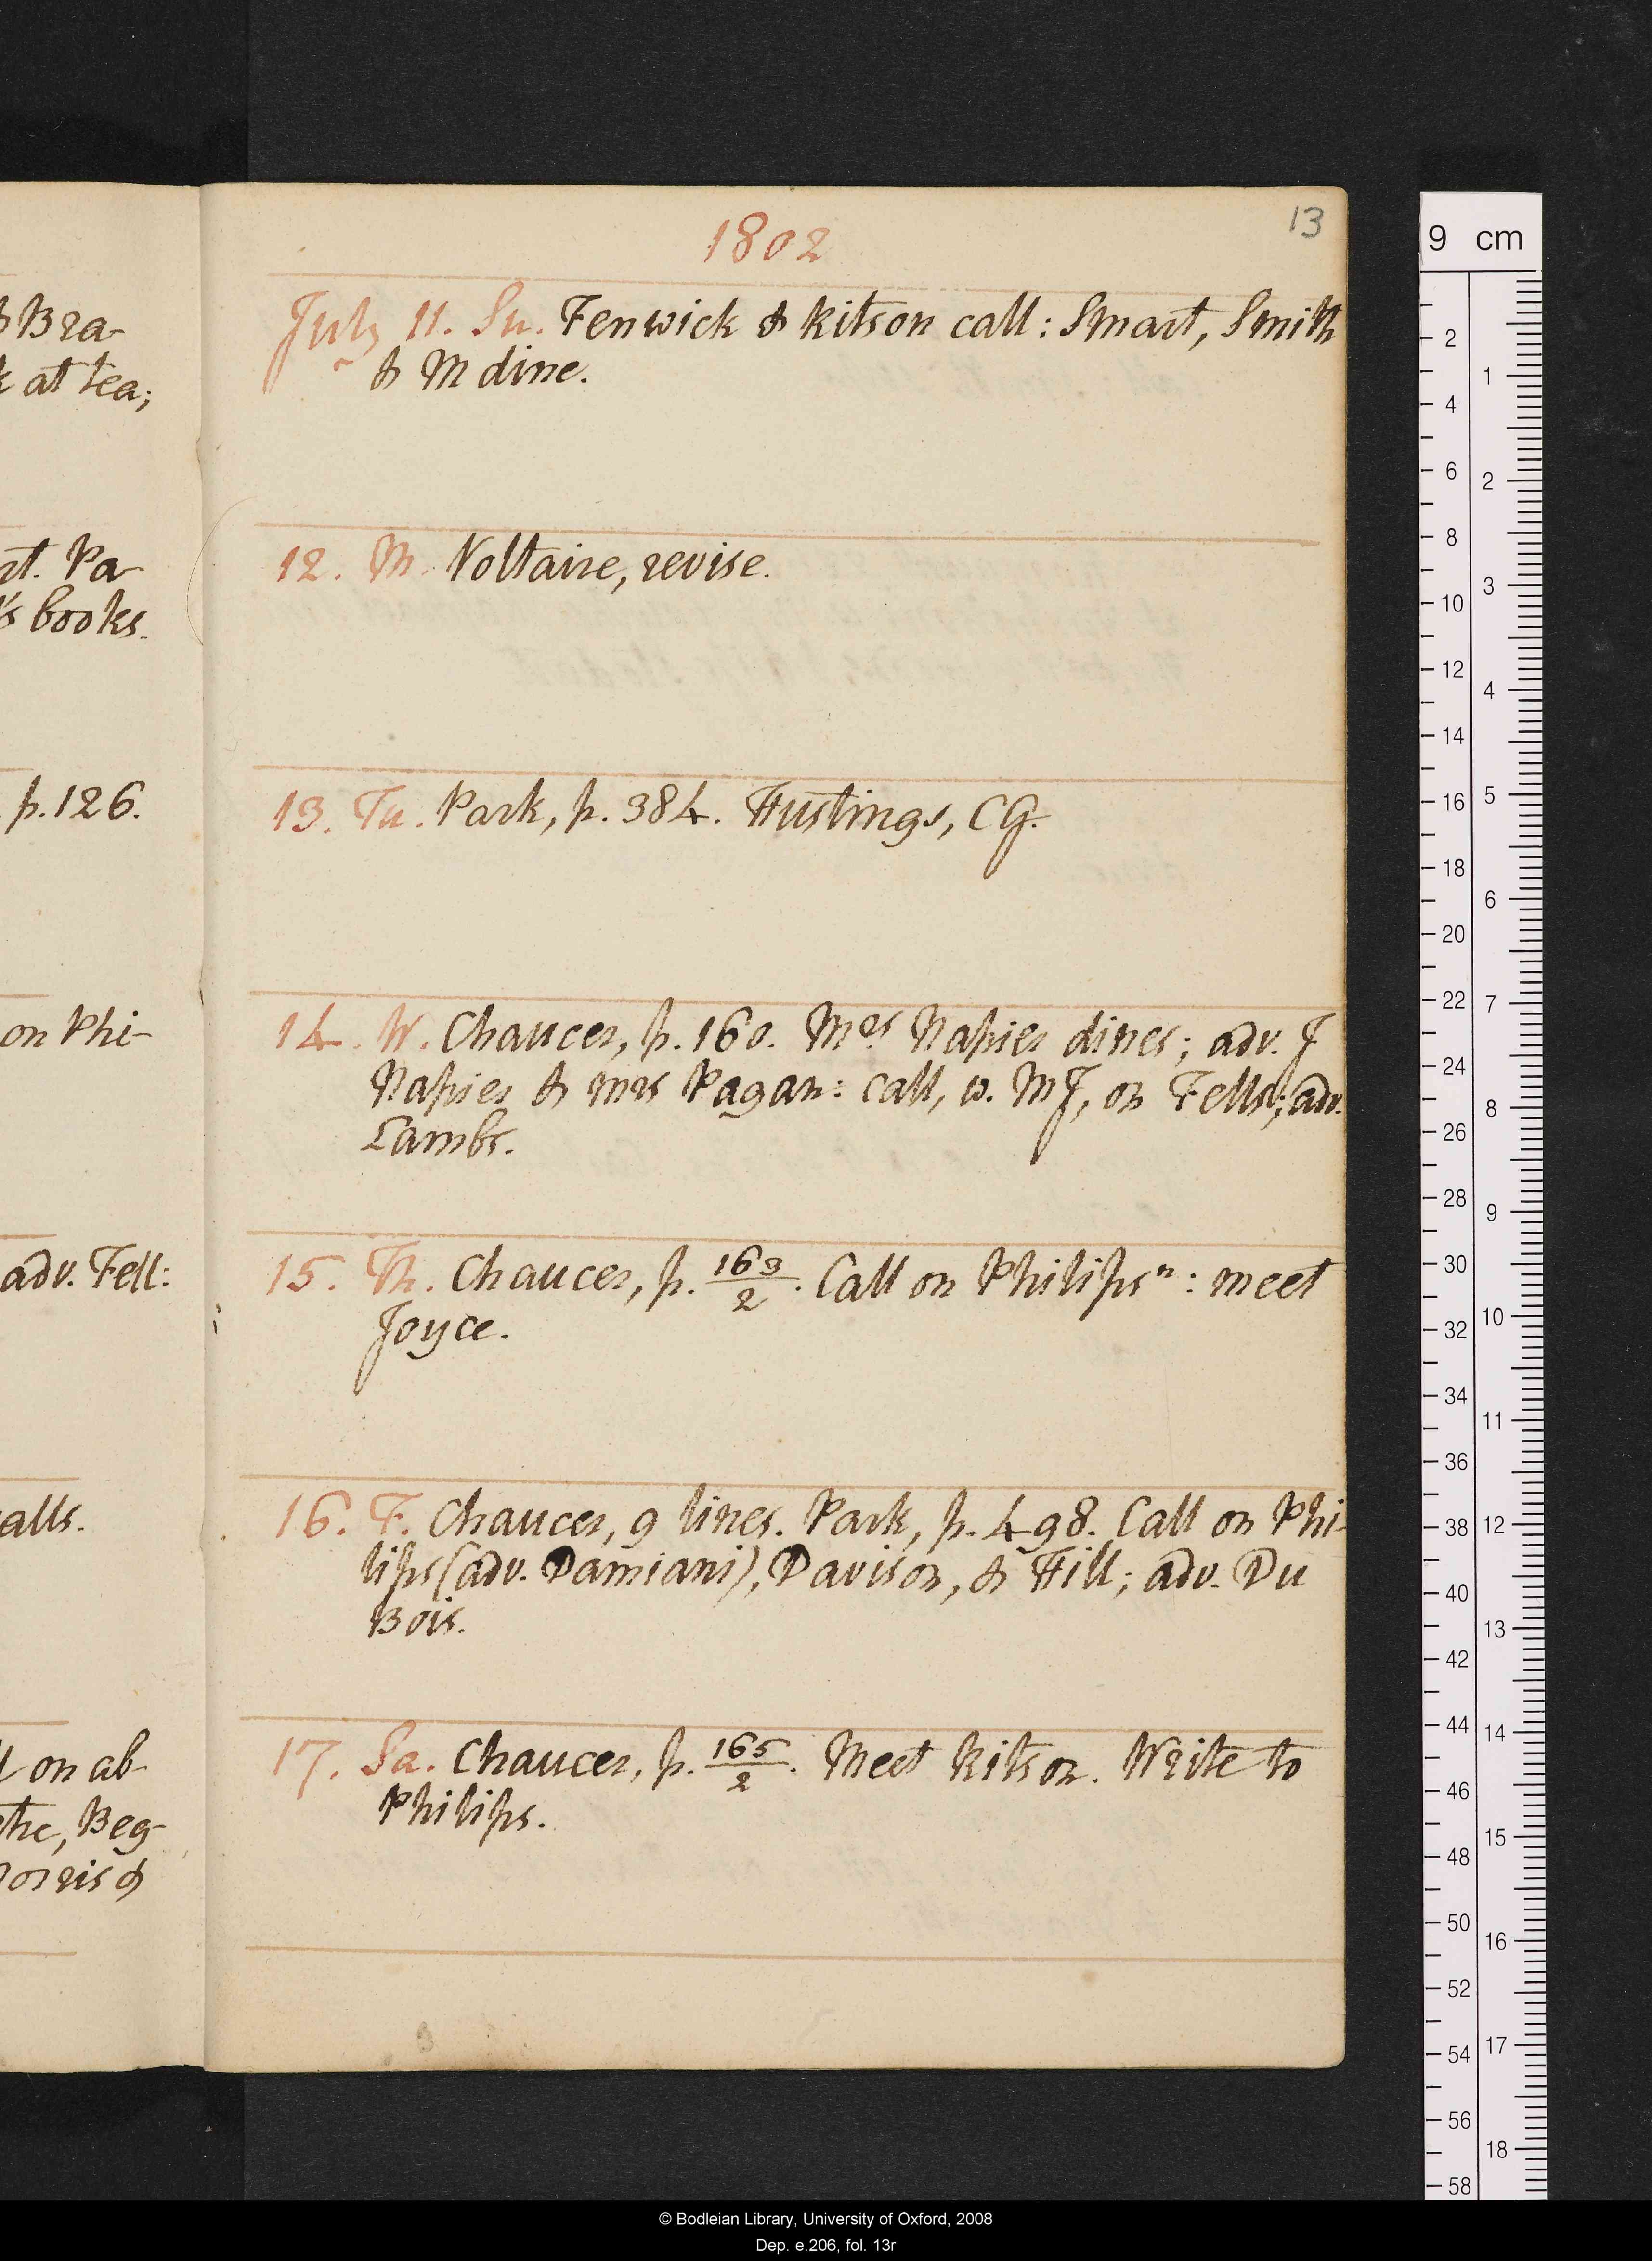 13
1802
July 11. Su. Fenwick & Kitson call: Smart, Smith
& M dine.
12. M. Voltaire, revise.
13. Tu. Park, p. 384. Hustings, CG.
14. W. Chaucer, p. 160. Mrs Napier dines; adv. J
Napier & mrs Pagan: call, w. MJ, on Fells; adv.
Lambs.
15. Th. Chaucer, p. 163/2. Call on Philipsn: meet
Joyce.
16. F. Chaucer, 9 lines. Park, p. 498. Call on Phi-
lips (adv. Damiani), Davison, & Hill; adv. Du
Bois.
17. Sa. Chaucer, p. 165/2. Meet Kitson. Write to
Philips.
& Bra-
at tea;
Pa-
books.
p. 126.
on Phi-
adv. Fell:
on ab-
Beg-
&
9 cm
2
4
6
8
10
12
14
16
18
20
22
24
26
28
30
32
34
36
38
40
42
44
46
48
50
52
54
56
58
1
2
3
4
5
6
7
8
9
10
11
12
13
14
15
16
17
18
© Bodleian Library, University of Oxford, 2008
Dep. e.206, fol. 13r